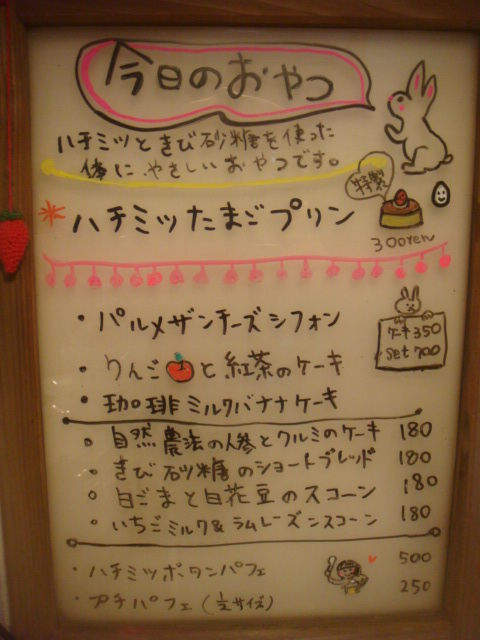 今日のおやつ
ハチミツときび砂糖を使った
体に やさしい おやつです。
特製
*ハチミツたまごプリン
300yen
・パルメザンチーズシフォン
ケーキ350
set 700
・りんごと紅茶のケーキ
・珈琲ミルクバナナケーキ
○自然農法の人参とクルミのケーキ 180
○きび砂糖のショートブレッド 180
○白ごまと白花豆のスコーン 180
○いちごミルク&ラムレーズンスコーン 180
・ハチミツボタンパフェ 500
・プチパフェ(1/2サイズ) 250